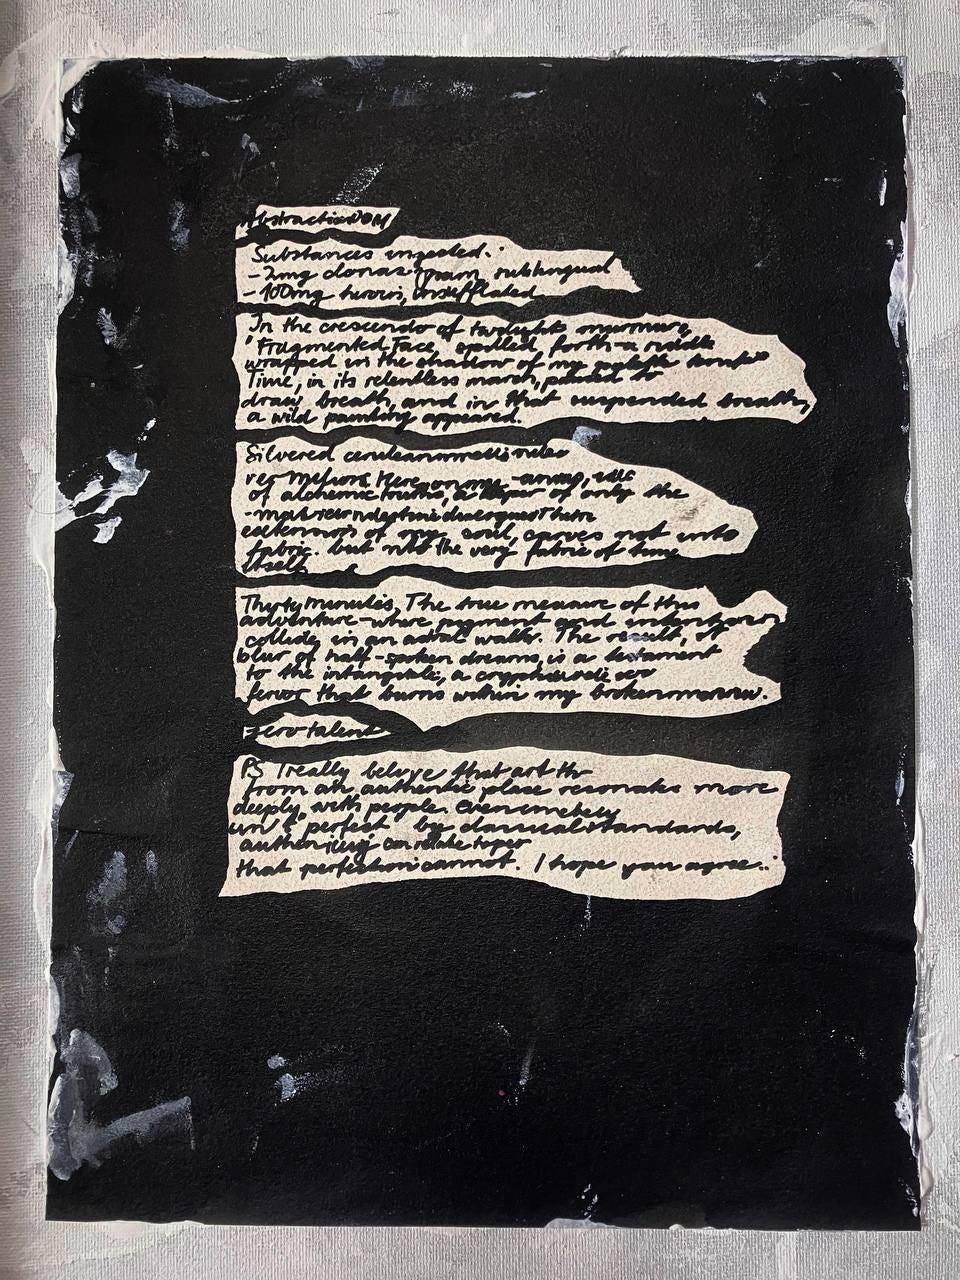 Substances ingested:
-2mg clonazepam, sublingual
-100mg heroin, insufflated
In the crescendo of twilight's murmurs,
"Fragmented Face" spilled forth-a riddle
wrapped in the shadow of my
Time, in its relentless march, paused to
draw breath, and in that suspended breath,
a wild painting appeared.
Silvered
of alchemic truths, a of only the
of my soul, carves not into
fabric. but into the very fabric of time
itself.
Thirty minutes, The true measure of this
adventure-where pigment and intent
collide, in an astral waltz. The result, a
blur of half-spoken dreams, is a testament
to the intangible, a
fervor that burns within my broken marrow.
zero talent
PS I really believe that art
from an authentic place resonates more
deeply with people. Even
un "perfect" by classical standards,
that perfection cannot. I hope you agree..